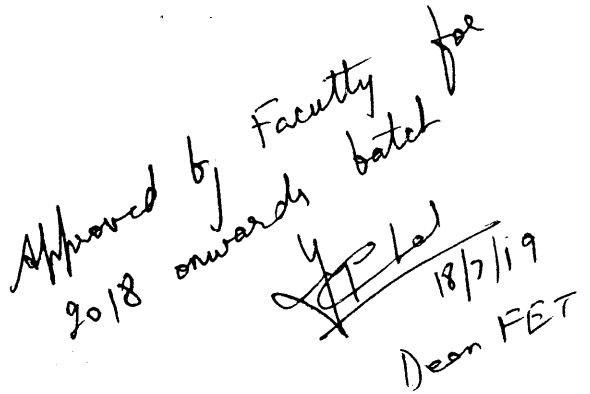 Approved by Faculty for
2018 onwards batch
18/7/19
Dean FET